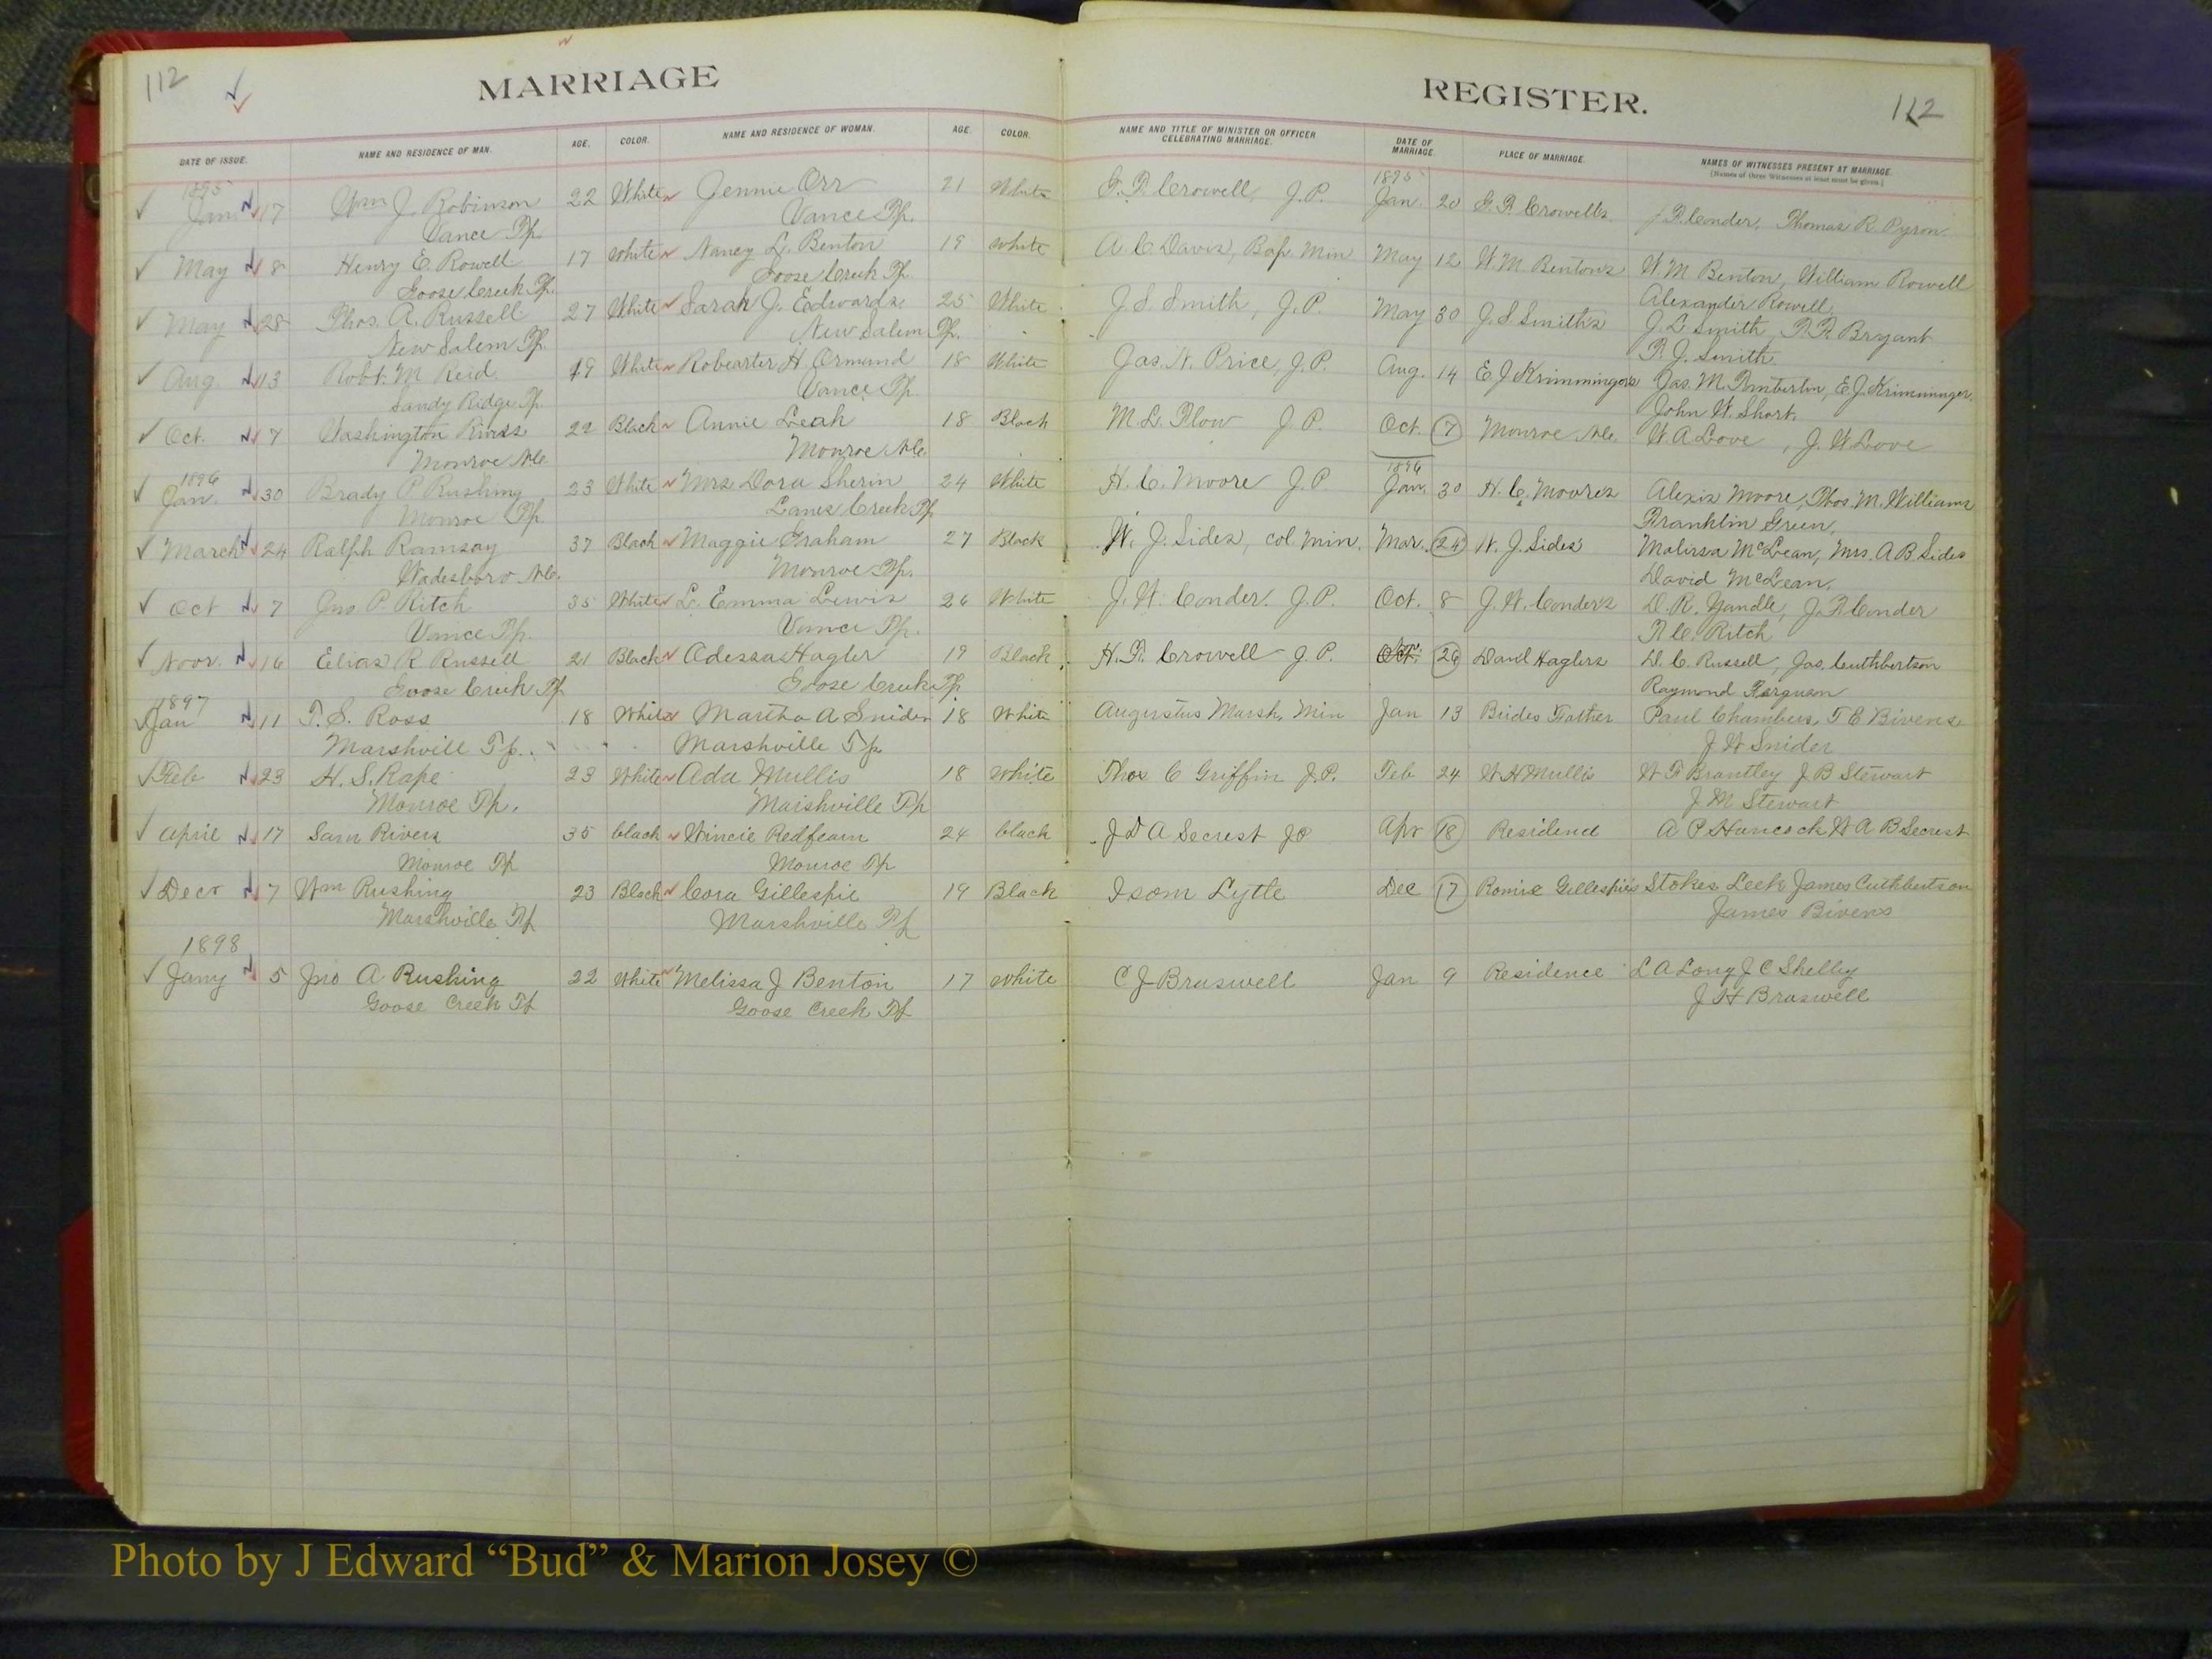 112
MARRIAGE
REGISTER.
112
DATE OF ISSUE. NAME AND RESIDENCE OF MAN. AGE. COLOR. NAME AND RESIDENCE OF WOMAN. AGE. COLOR. NAME AND TITLE OF MINISTER OR OFFICER CELEBRATING MARRIAGE. DATE OF MARRIAGE. PLACE OF MARRIAGE. NAMES OF WITNESSES PRESENT AT MARRIAGE.
(Names of three Witnesses at least must be given.)
1895 1895
Jan 17 Wm J. Robinson 22 White Jennie Orr 21 White Crowell, J.P. Jan. 20 Crowells Conder, Thomas R. Pyron
Vance Tp. Vance Tp.
May 8 Henry E. Rowell 17 White Nancy L. Benton 19 White A. C. Davis, Bap. Min May 12 W. M. Bentons W. M. Benton, William Rowell
Goose Creek Tp. Goose Creek Tp. Alexander Rowell,
May 28 Thos. A. Russell 27 White Sarah J. Edwards 25 White J. S. Smith, J.P. May 30 J. S. Smiths J. L. Smith, Bryant
New Salem Tp. New Salem Tp. Smith
Aug. 13 Robt. M Reid. 19 White Robearter H. Ormand 18 White Jas. N. Price, J.P. Aug. 14 E. J. Krimmingers Jas. M. Pemberton, E. J. Krimminger,
Sandy Ridge Tp. Vance Tp. John W. Short.
Oct. 7 Washington 22 Black Annie Leak 18 Black M. L. Flow J.P. Oct. 7 Monroe N.C. W. A. Love, J. W. Love
Monroe N.C. Monroe N.C.
1896 1896
Jan. 30 Brady P. Rushing 23 White Mrs. Dora Sherin 24 White H. C. Moore J.P. Jan. 30 H. C. Moore's Alexis Moore, Thos. M. Williams
Monroe Tp. Lanes Creek Tp. Franklin Green,
March 24 Ralph Ramsay 37 Black Maggie Graham 27 Black W. J. Sides, col. Min. Mar. 24 W. J. Sides' Malissa McLean, Mrs. A B Sides
Wadesboro N.C. Monroe Tp. David McLean,
Oct 7 Jno P. Ritch 35 White L. Emma Lewis 26 White J. W. Conder. J.P. Oct. 8 J. W. Conder's D. R. Yandle, Conder
Vance Tp. Vance Tp. Ritch
Novr. 16 Elias R Russell 21 Black Adessa Hagler 19 Black Crowell J.P. Oct. 26 David Haglers D. C. Russell, Jas. Cuthbertson
Goose Creek Tp. Goose Creek Tp. Raymond Ferguson
1897
Jan 11 T. S. Ross 18 White Martha A Snider 18 White Augustus Marsh, Min Jan 13 Brides Father Paul Chambers, T E Bivens
Marshvill Tp. Marshville Tp. J W Snider
Feb 23 H. S. Rape 23 White Ada Mullis 18 White Thos C Griffin J.P. Feb 24 W H Mullis W F Brantley J B Stewart
Monroe Tp. Marshville Tp J M Stewart
April 17 Sam Rivers 35 black Wincie Redfearn 24 black J D A Secrest JP Apr 18 Residend A P Hancock W A B Secrest
Monroe Tp Monroe Tp
Decr 7 Wm Rushing 23 Black Cora Gillespie 19 Black Isom Lytle Dec 17 Romie Gillespie's Stokes Leek James Cuthbertson
Marshville Tp Marshville Tp James Bivens
1898
Jany 5 Jno A Rushing 22 White Melissa J Benton 17 White C J Braswell Jan 9 Residence L A Long J C Shelley
Goose Creek Tp Goose Creek Tp J H Braswell
Photo by J Edward “Bud” & Marion Josey ©